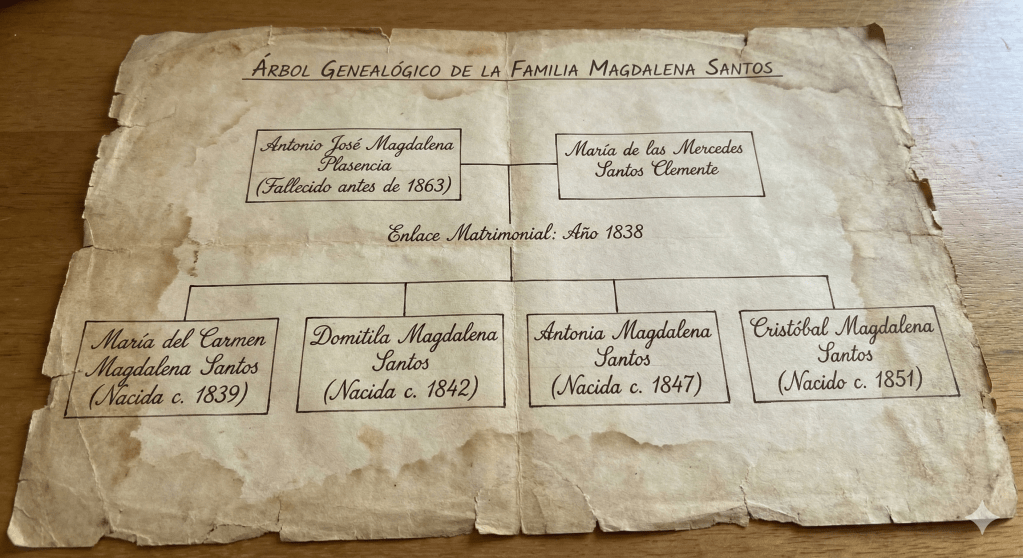 ÁRBOL GENEALÓGICO DE LA FAMILIA MAGDALENA SANTOS
Antonio José Magdalena
Plasencia
(Fallecido antes de 1863)
María de las Mercedes
Santos Clemente
Enlace Matrimonial: Año 1838
María del Carmen
Magdalena Santos
(Nacida c. 1839)
Domitila Magdalena
Santos
(Nacida c. 1842)
Antonia Magdalena
Santos
(Nacida c. 1847)
Cristóbal Magdalena
Santos
(Nacido c. 1851)